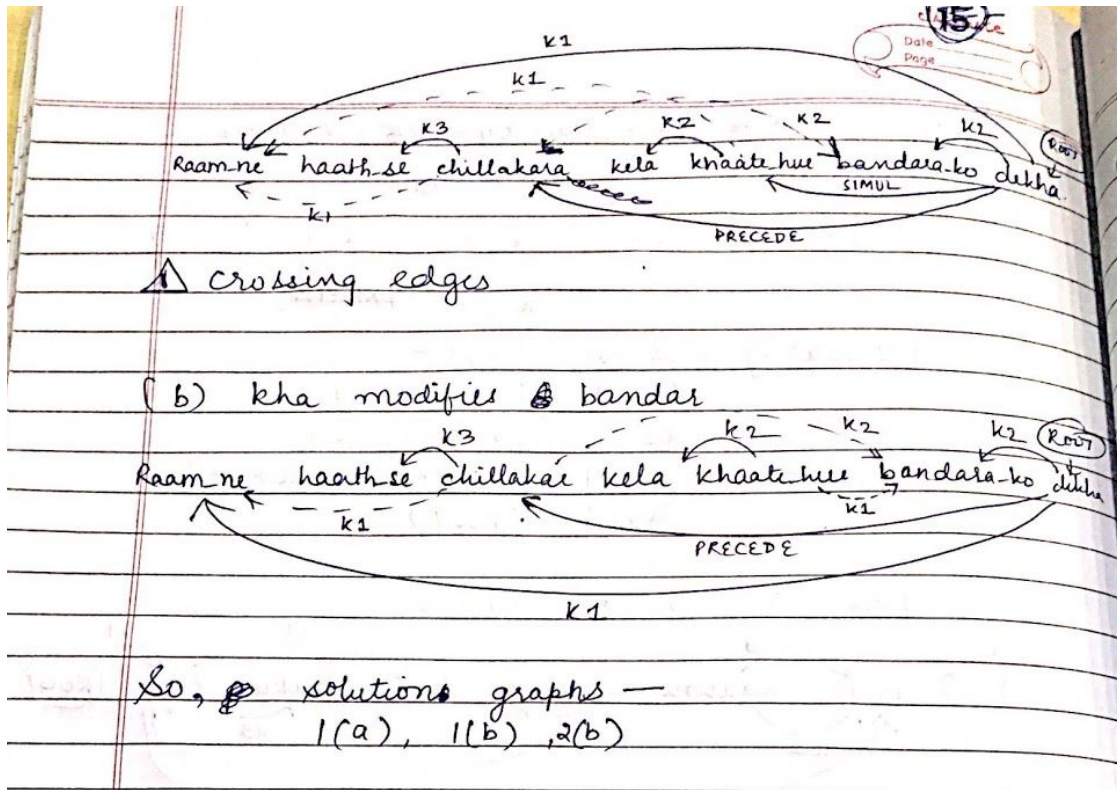 15
Date
Page
K1
K1
K3 K2 K2 K2
Raam-ne haath-se chillakara kela khaate-hue bandara-ko dekha
ROOT
K1 SIMUL
PRECEDE
crossing edges
(b) kha modifies bandar
K3 K2 K2 K2 ROOT
Raam-ne haath-se chillakar kela khaate-hue bandara-ko dikha
K1 K1
PRECEDE
K1
So, solutions graphs —
1(a), 1(b), 2(b)